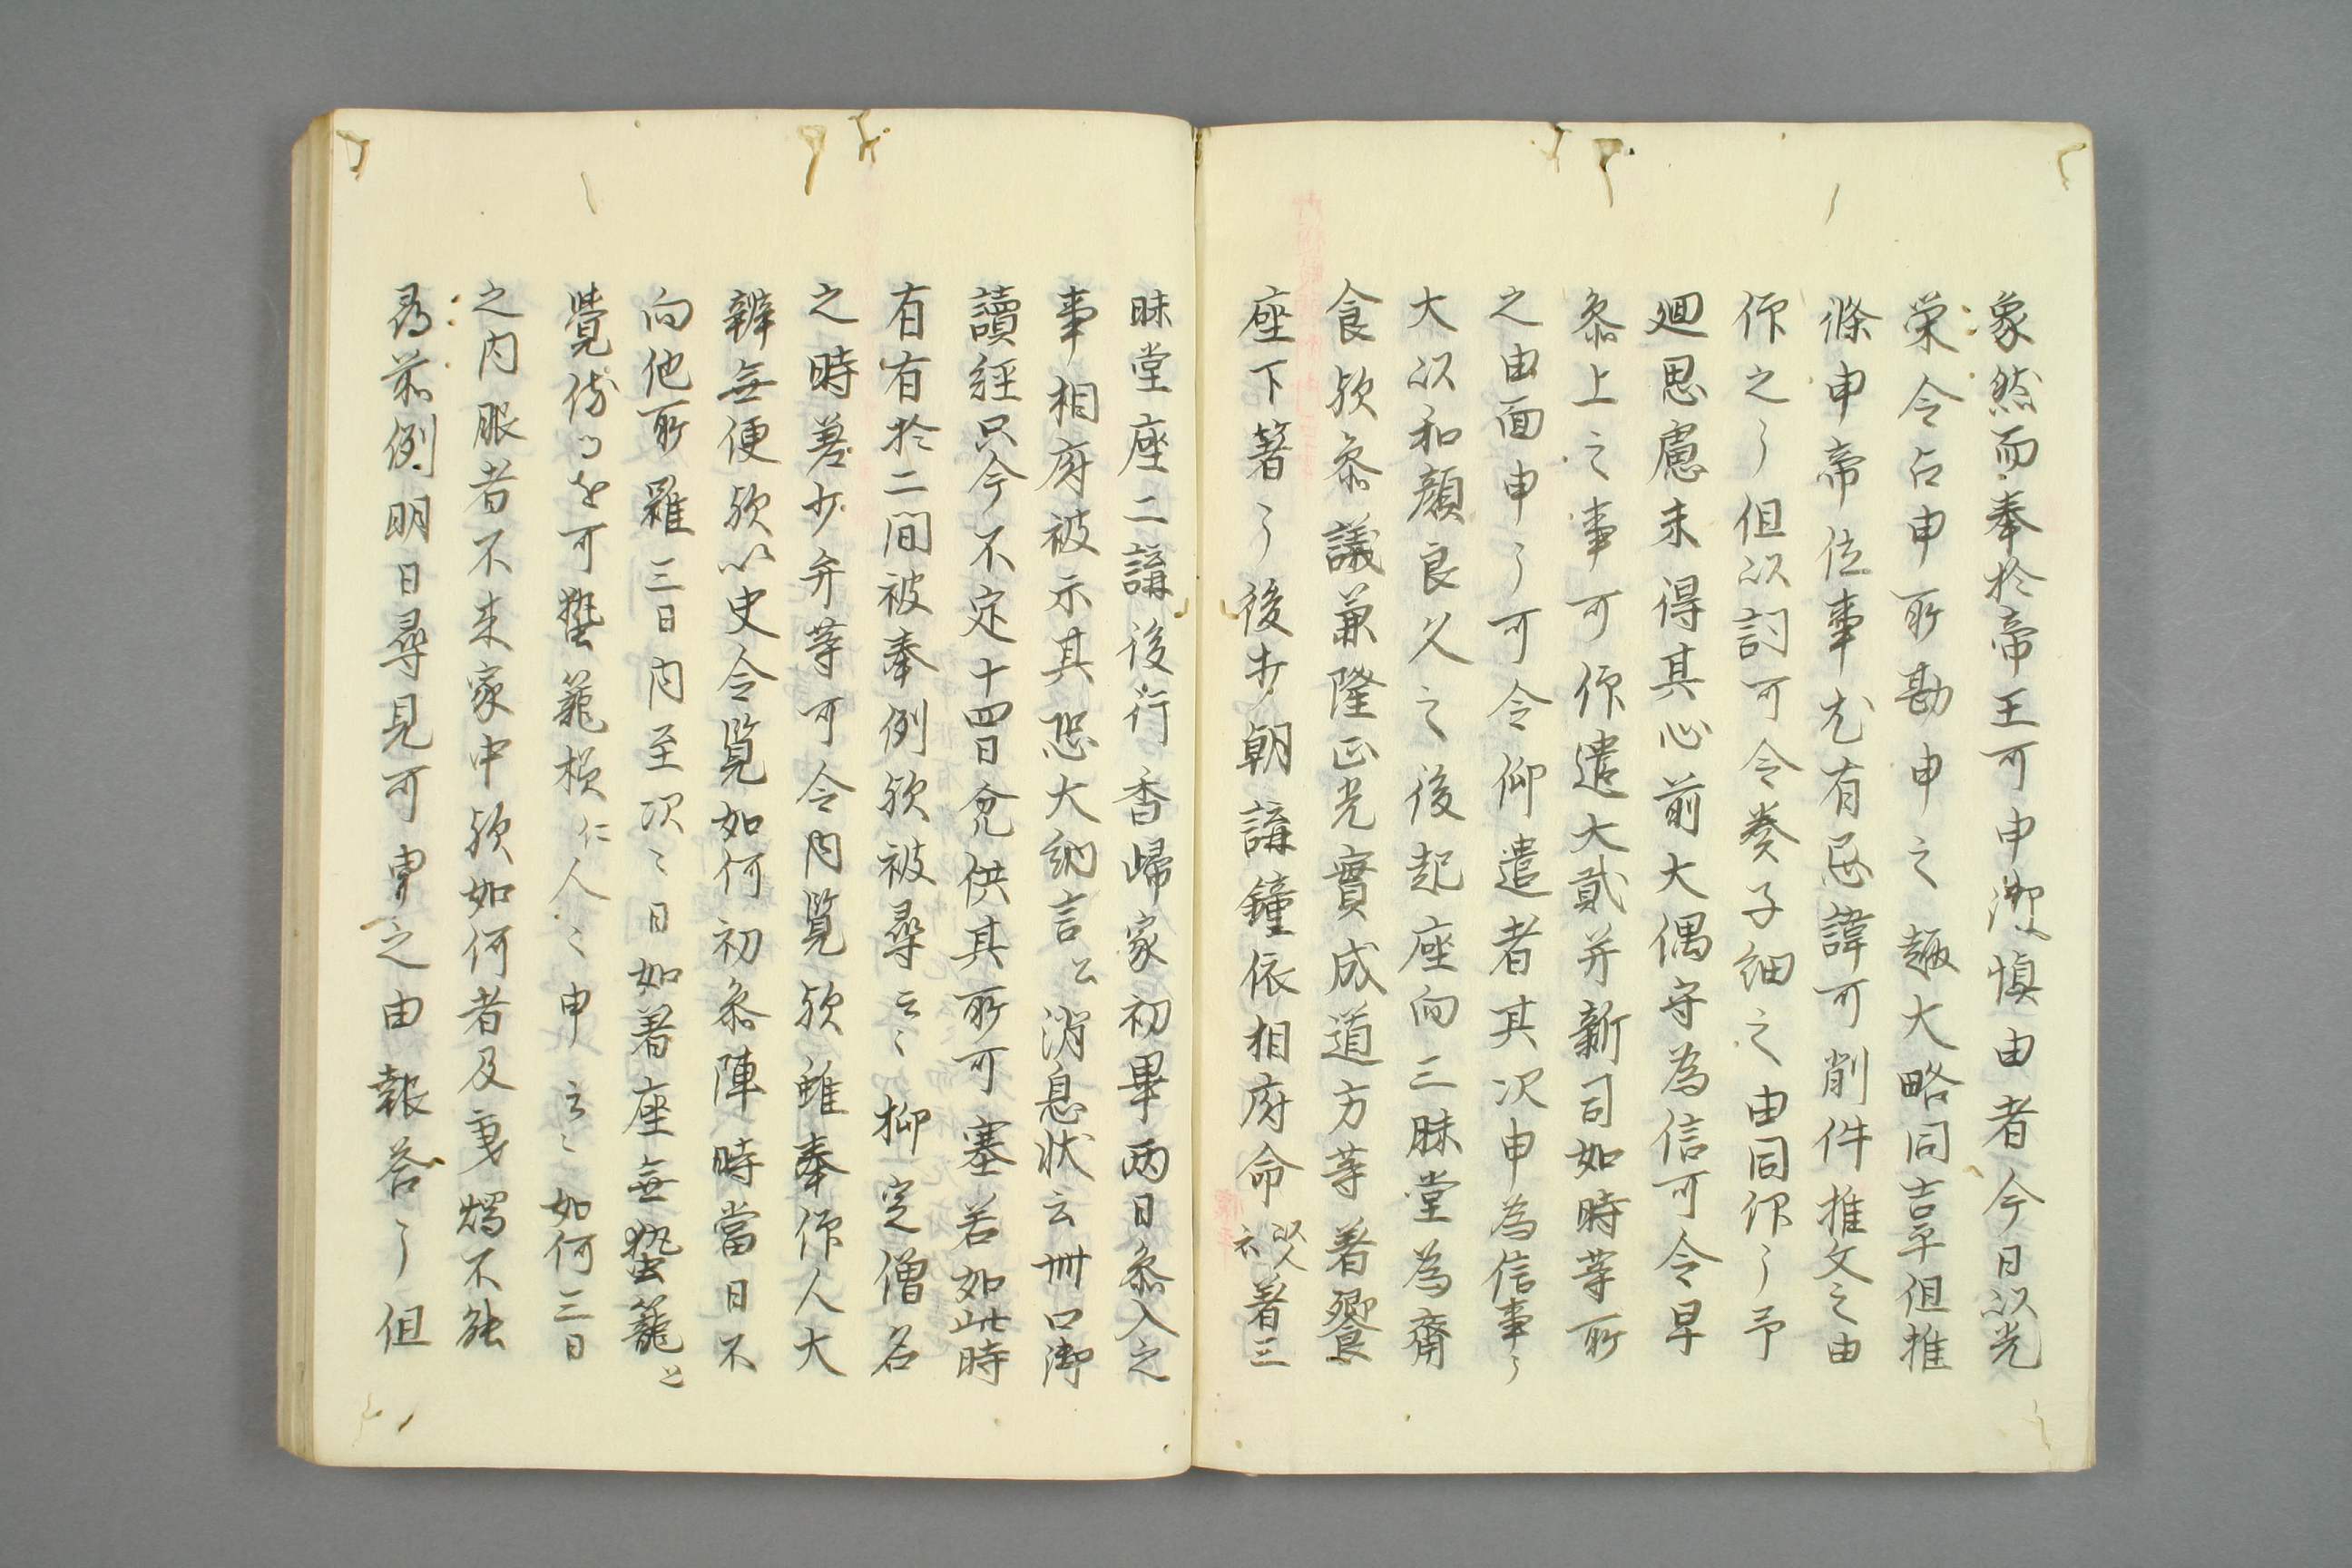 象然而奉於帝王可申御慎由者今日以光
栄令占申所勘申之趣大略同吉平但推
條申帝位事尤有忌諱可削件推文之由
仰之了但以詞可令奏子細之由同仰了予
廻思慮未得其心前大偶守為信可令早
参上之事可仰遣大貳并新司如時等所
之由面申了可令仰遣者其次申為信事了
大以和顔良久之後起座向三昧堂為齋
食欤参議兼隆正光實成道方等着饗
座下箸了後打朝講鐘依相府命以人示着三
昧堂座二講後行香帰家初畢両日参入之
事相府被示其恐大納言公消息状云卅口御
讀経只今不定十四日分供其所可塞若如此時
有有於二間被奉例欤被尋云々抑定僧名
之時差少弁等可令内覧欤雖奉仰人大
辨無便欤以史令覧如何初参陣時當日不
向他所雖三日内至次々日如着座無蟄籠と
覚侍つるを可蟄籠樣に人々申云々如何三日
之内服者不来家中欤如何者及夏燭不能
尋前例明日尋見可申之由報答了但